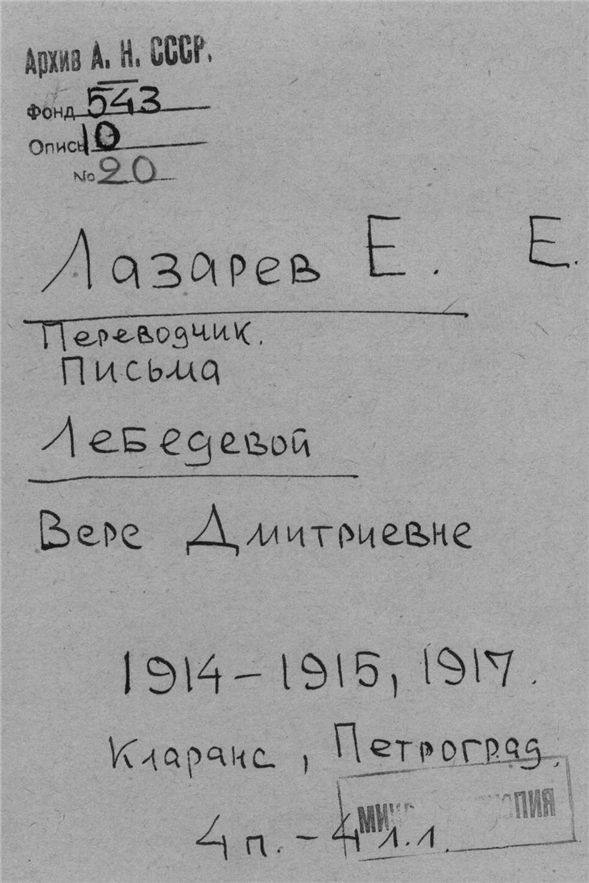 Архив А. Н. СССР.
Фонд 543
Опись 10
№ 20
Лазарев Е. Е.
Переводчик.
Письма
Лебедевой
Вере Дмитриевне
1914-1915, 1917.
Кларанс, Петроград.
4 п. - 4 л.л.